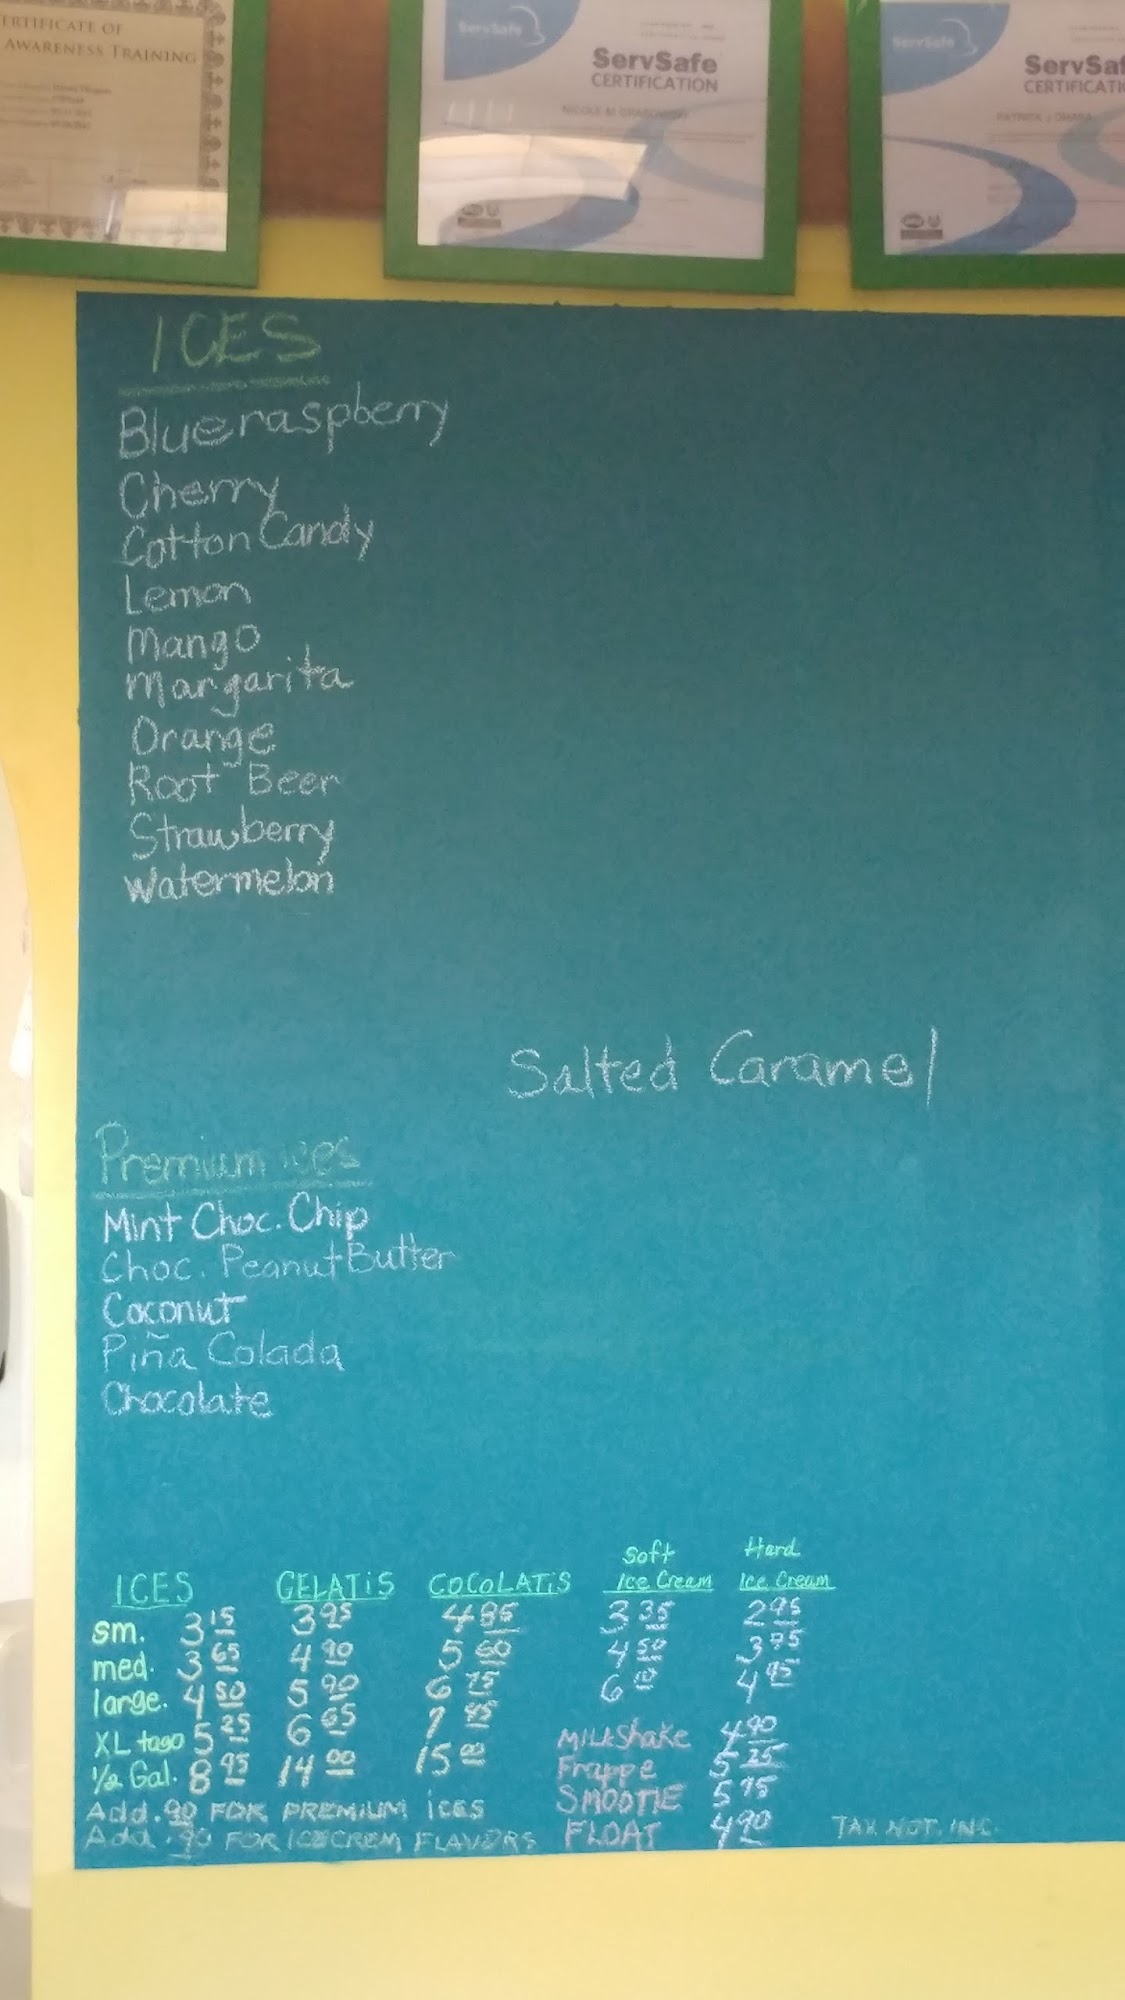 ERTIFICATE OF
AWARENESS TRAINING
ServSafe
ServSafe
CERTIFICATION
NICOLE M GRABOWSKI
ServSafe
ServSaf
CERTIFICATI
PATRICK J OHARA
ICES
Blueraspberry
Cherry
Cotton Candy
Lemon
Mango
Margarita
Orange
Root Beer
Strawberry
Watermelon
Salted Caramel
Premium ices
Mint Choc. Chip
Choc. Peanut Butter
Coconut
Piña Colada
Chocolate
ICES GELATIS COCOLATIS Soft Ice Cream Hard Ice Cream
sm. 3 15 3 95 4 85 3 35 2 95
med. 3 65 4 90 5 60 4 50 3 75
large. 4 50 5 90 6 75 6 10 4 95
XL to go 5 25 6 65 7 95
1/2 Gal. 8 95 14 00 15 00
Add .90 FOR PREMIUM ICES
Add .90 FOR ICECREM FLAVORS
MILKShake 4 90
Frappe 5 25
SMOOTIE 5 95
FLOAT 4 90
TAX NOT. INC.